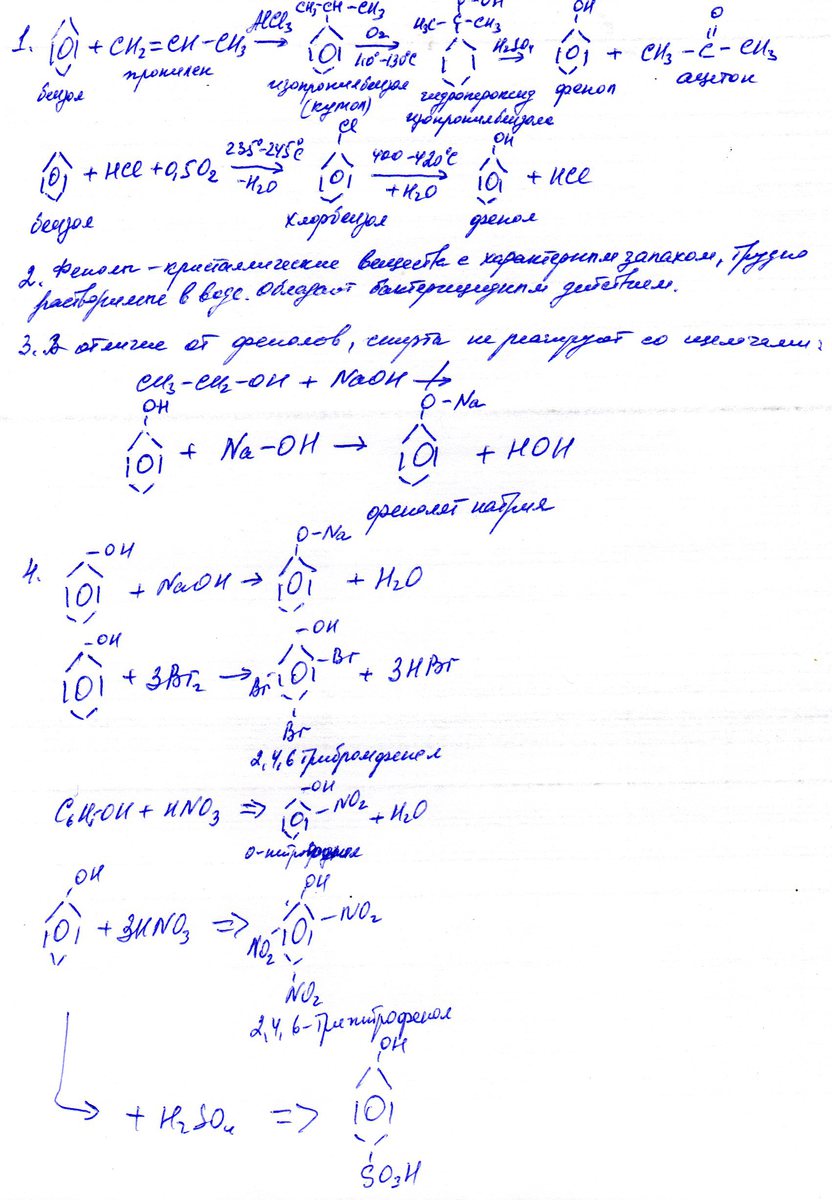 1. + CH₂=CH–CH₃ AlCl₃ → CH₃–CH–CH₃ O₂ 110°–130°C → H₃C–C–CH₃ O–OH H₂SO₄ → OH + CH₃–C–CH₃ O
бензол пропилен изопропилбензол (кумол) гидропероксид изопропилбензола фенол ацетон
+ HCl + 0,5O₂ 235°–245°C –H₂O → Cl 400–420°C + H₂O → OH + HCl
бензол хлорбензол фенол
2. Фенолы – кристаллические вещества с характерным запахом, трудно
растворимые в воде. Обладают бактерицидным действием.
3. В отличие от фенолов, спирты не реагируют со щелочами:
CH₃–CH₂–OH + NaOH ↛
OH + Na–OH → O–Na + HOH
фенолят натрия
4. –OH + NaOH → O–Na + H₂O
–OH + 3Br₂ → –OH –Br Br Br + 3HBr
2,4,6 трибромфенол
C₆H₅OH + HNO₃ ⇒ –OH –NO₂ + H₂O
OH + 3HNO₃ ⇒ OH –NO₂ NO₂ NO₂
2,4,6-тринитрофенол
→ + H₂SO₄ ⇒ OH SO₃H